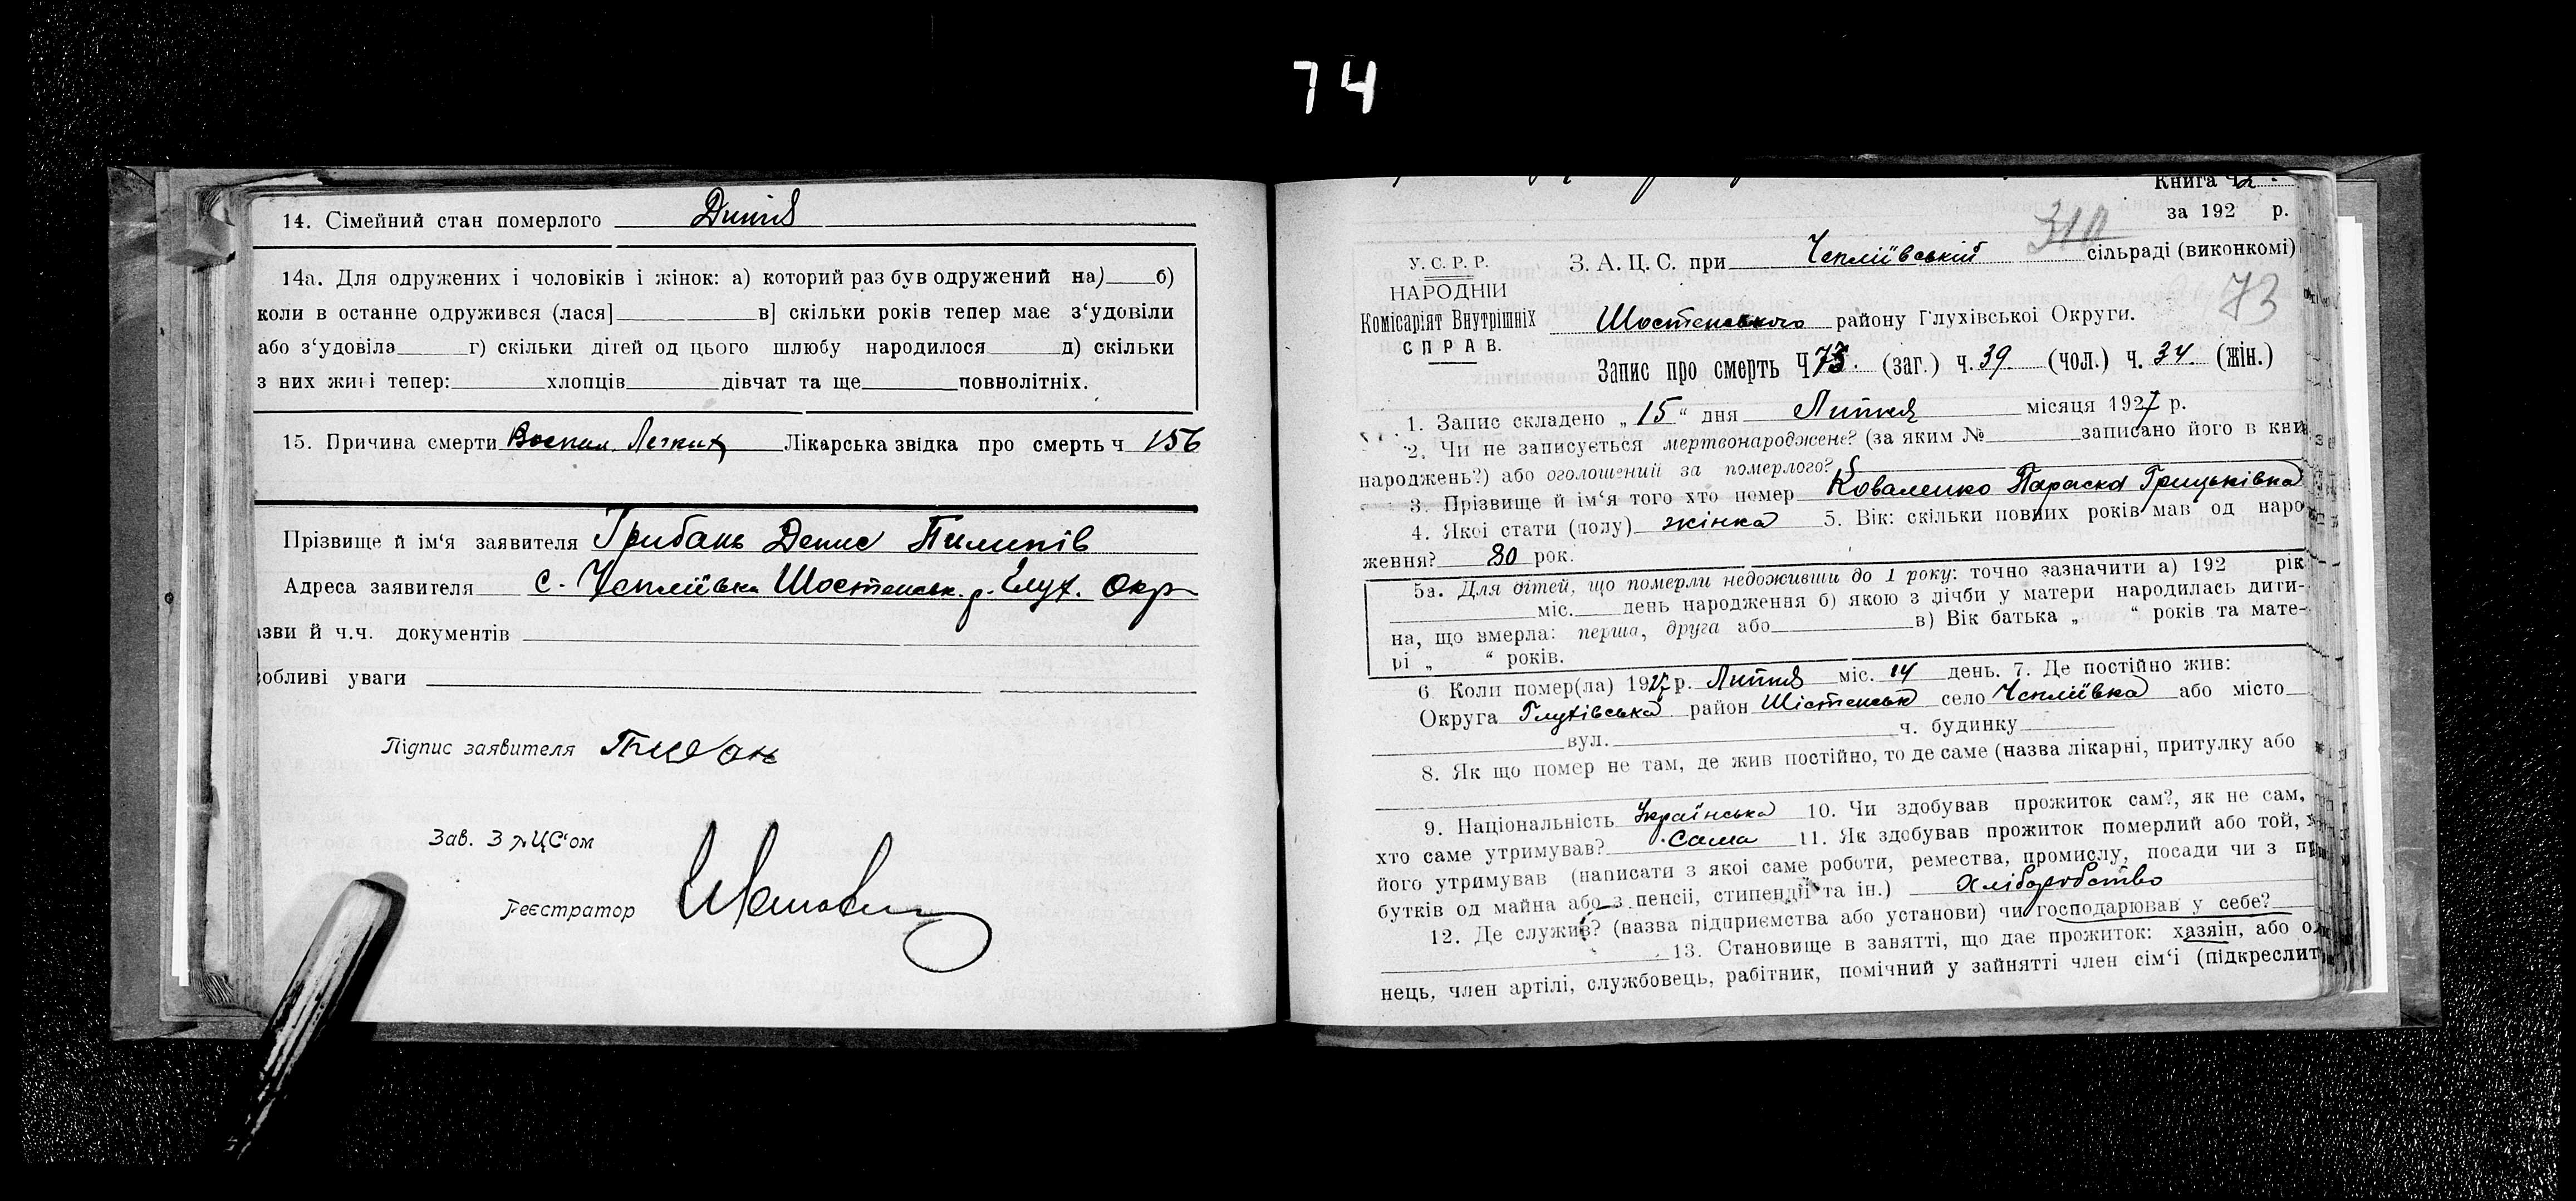 74
14. Сімейний стан померлого Дитя
14а. Для одружених і чоловіків і жінок: а) которий раз був одружений на) б)
коли в останне одружився (лася] в] скільки років тепер має з‘удовіли
або з‘удовіла г) скільки дітей од цього шлюбу народилося д) скільки
з них живі тепер: хлопців дівчат та ще повнолітніх.
15. Причина смерти Воспал. Легких Лікарська звідка про смерть ч 156
Прізвище й ім‘я заявителя Грибань Денис Пилипів
Адреса заявителя с. Чепліївка Шостенськ. р. Глух. Окр
азви й ч.ч. документів
собливі уваги
Підпис заявителя
Зав. ЗАЦС‘ом
Реєстратор
Книга ч 2
за 192 р.
310
У. С. Р. Р. З. А. Ц. С. при Чепліївській сільраді (виконкомі)
НАРОДНІЙ
73
Комісаріят Внутрішніх Шостенського району Глухівської Округи.
СПРАВ.
Запис про смерть Ч 73. (заг.) ч. 39. (чол.) ч. 34. (жін.)
1. Запис складено „15“ дня Липня місяця 1927 р.
2. Чи не записується мертвонароджене? (за яким № записано його в кни
народжень?) або оголошений за померлого?
3. Прізвище й ім‘я того хто помер Коваленко Параска Грицьківна
4. Якої стати (полу) жінка 5. Вік: скільки повних років мав од наро
ження? 80 рок.
5а. Для дітей, що померли недоживши до 1 року: точно зазначити а) 192 рік
міс. день народження б) якою з лічби у матери народилась дити-
на, що вмерла: перша, друга або в) Вік батька „ “ років та мате-
рі „ “ років.
6 Коли помер(ла) 1927 р. Липня міс. 14 день. 7. Де постійно жив:
Округа Глухівська район Шістенськ село Чепліївка або місто
вул. ч. будинку
8. Як що помер не там, де жив постійно, то де саме (назва лікарні, притулку або
9. Національність Українська 10. Чи здобував прожиток сам?, як не сам,
хто саме утримував? Сама 11. Як здобував прожиток померлий або той,
його утримував (написати з якої саме роботи, ремества, промислу, посади чи з пр
бутків од майна або з пенсії, стипендії та ін.) Хліборобство
12. Де служив? (назва підприємства або установи) чи господарював у себе?
13. Становище в занятті, що дає прожиток: хазяін, або о
нець, член артілі, службовець, рабітник, помічний у зайнятті член сім‘і (підкреслит